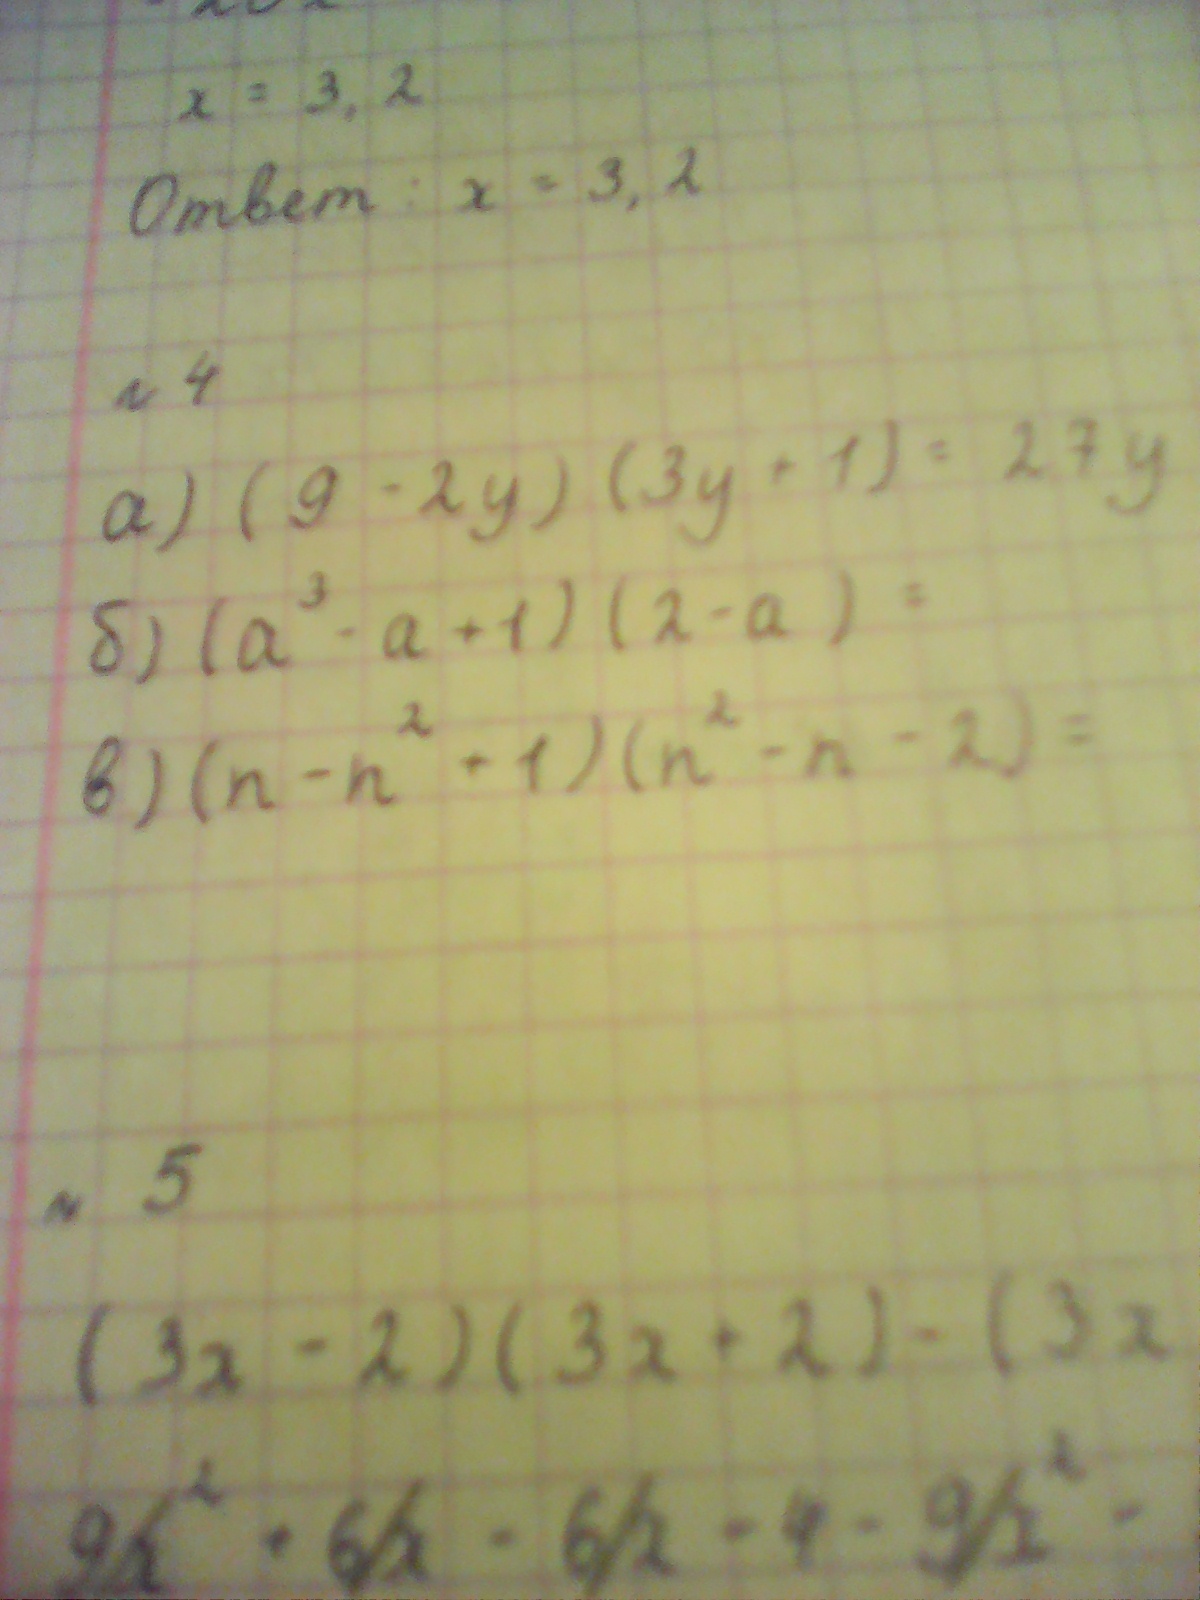 x = 3,2
Ответ: x = 3,2
№ 4
а) (9 - 2y) (3y + 1) = 27y
б) (a³ - a + 1) (2 - a) =
в) (n - n² + 1) (n² - n - 2) =
№ 5
(3x - 2) (3x + 2) - (3x
9x² + 6x - 6x - 4 - 9x² -